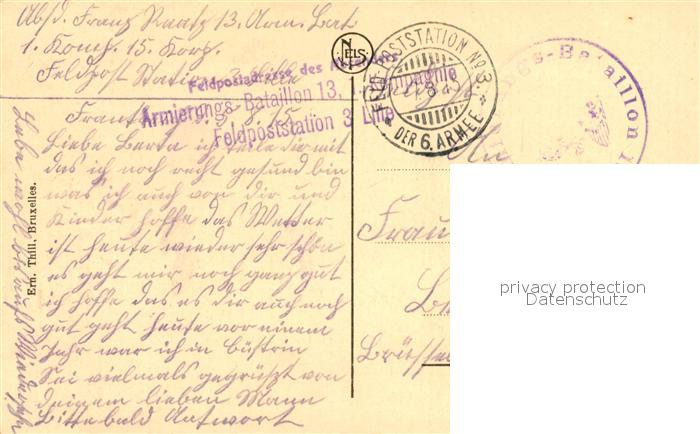 Absd. Franz Raatz 13. Arm. Bat.
1. Komp. 15. Korp.
Feldpost Station 3 Lille
Feldpostadresse des Absenders
Armierungs-Bataillon 13, 1. Kompagnie
Feldpoststation 3 Lille
NELS
FELD-POSTSTATION No 3.
DER 6. ARMEE
Bataillon
Liebe Berta ich teile dir mit
das ich noch recht gesund bin
was ich auch von dir und
Kinder hoffe das Wetter
ist heute wieder sehr schön
es geht mir noch ganz gut
ich hoffe das es dir auch noch
gut geht heute vor einem
Jahr war ich in Cüstrin
Sei vielmals gegrüßt von
deinem lieben Mann
Bitte bald Antwort
Lebe wohl bis aufs Wiedersehn
Ern. Thill, Bruxelles.
An
Frau
privacy protection
Datenschutz